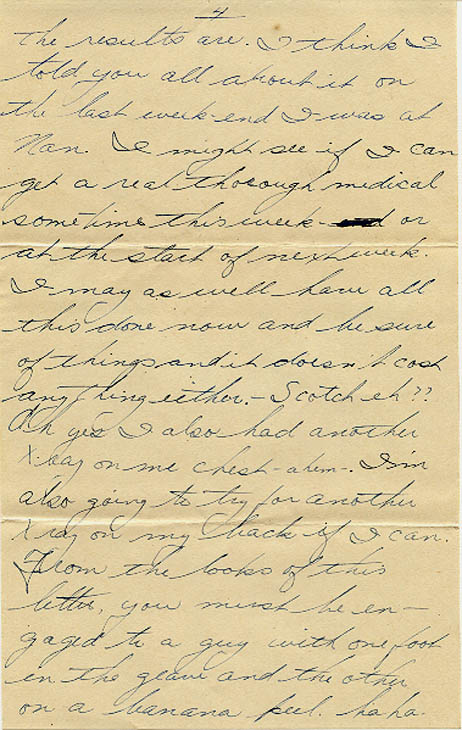 4
the results are. I think I
told you all about it on
the last week-end I was at
Nan. I might see if I can
get a real thorough medical
sometime this week- or
at the start of next week.
I may as well have all
this done now and be sure
of things and it doesn't cost
anything either. - Scotch eh??
Oh yes I also had another
X-ray on me chest - ahem -. I'm
also going to try for another
X ray on my back if I can.
From the looks of this
letter, you must be en-
gaged to a guy with one foot
in the grave and the other
on a banana peel. haha.